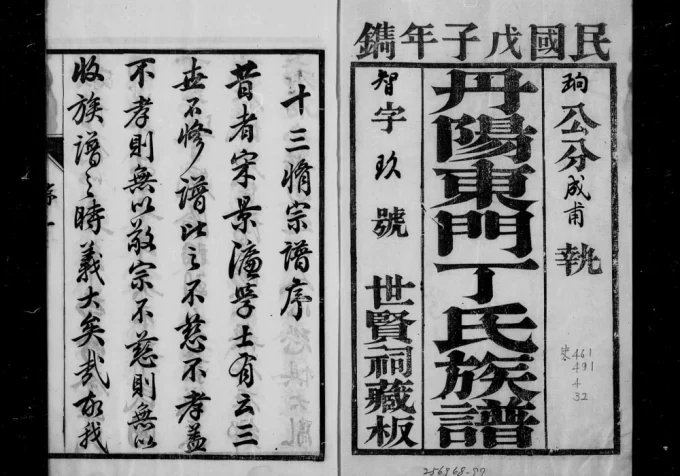 民國戊子年鐫
珣公分成甫執
丹陽東門丁氏族譜
智字玖號
世賢祠藏板
461
491
4
32
十三脩宗譜序
昔者宋景濂學士有云三
世不修譜比之不慈不孝蓋
不孝則無以敬宗不慈則無以
收族譜之時義大矣哉我
序一